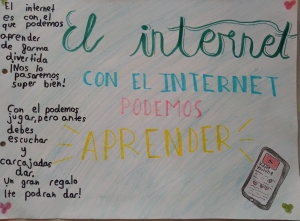 El internet
es con, el
que podemos
aprender
de forma
divertida
¡Nos lo
pasaremos
super bien!
Con el podemos
jugar, pero antes
debes
escuchar
y
carcajadas
dar.
un gran regalo
¡te podran dar!
El internet
CON EL INTERNET
PODEMOS
APRENDER